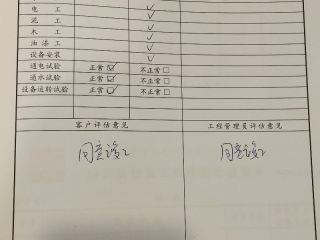 电 工 ✓
泥 工 ✓
木 工 ✓
油 漆 工 ✓
设备安装 ✓
通电试验 正常☑ 不正常□
通水试验 正常☑ 不正常□
设备运转试验 正常☑ 不正常□
客户评估意见 工程管理员评估意见
同意竣工 同意竣工